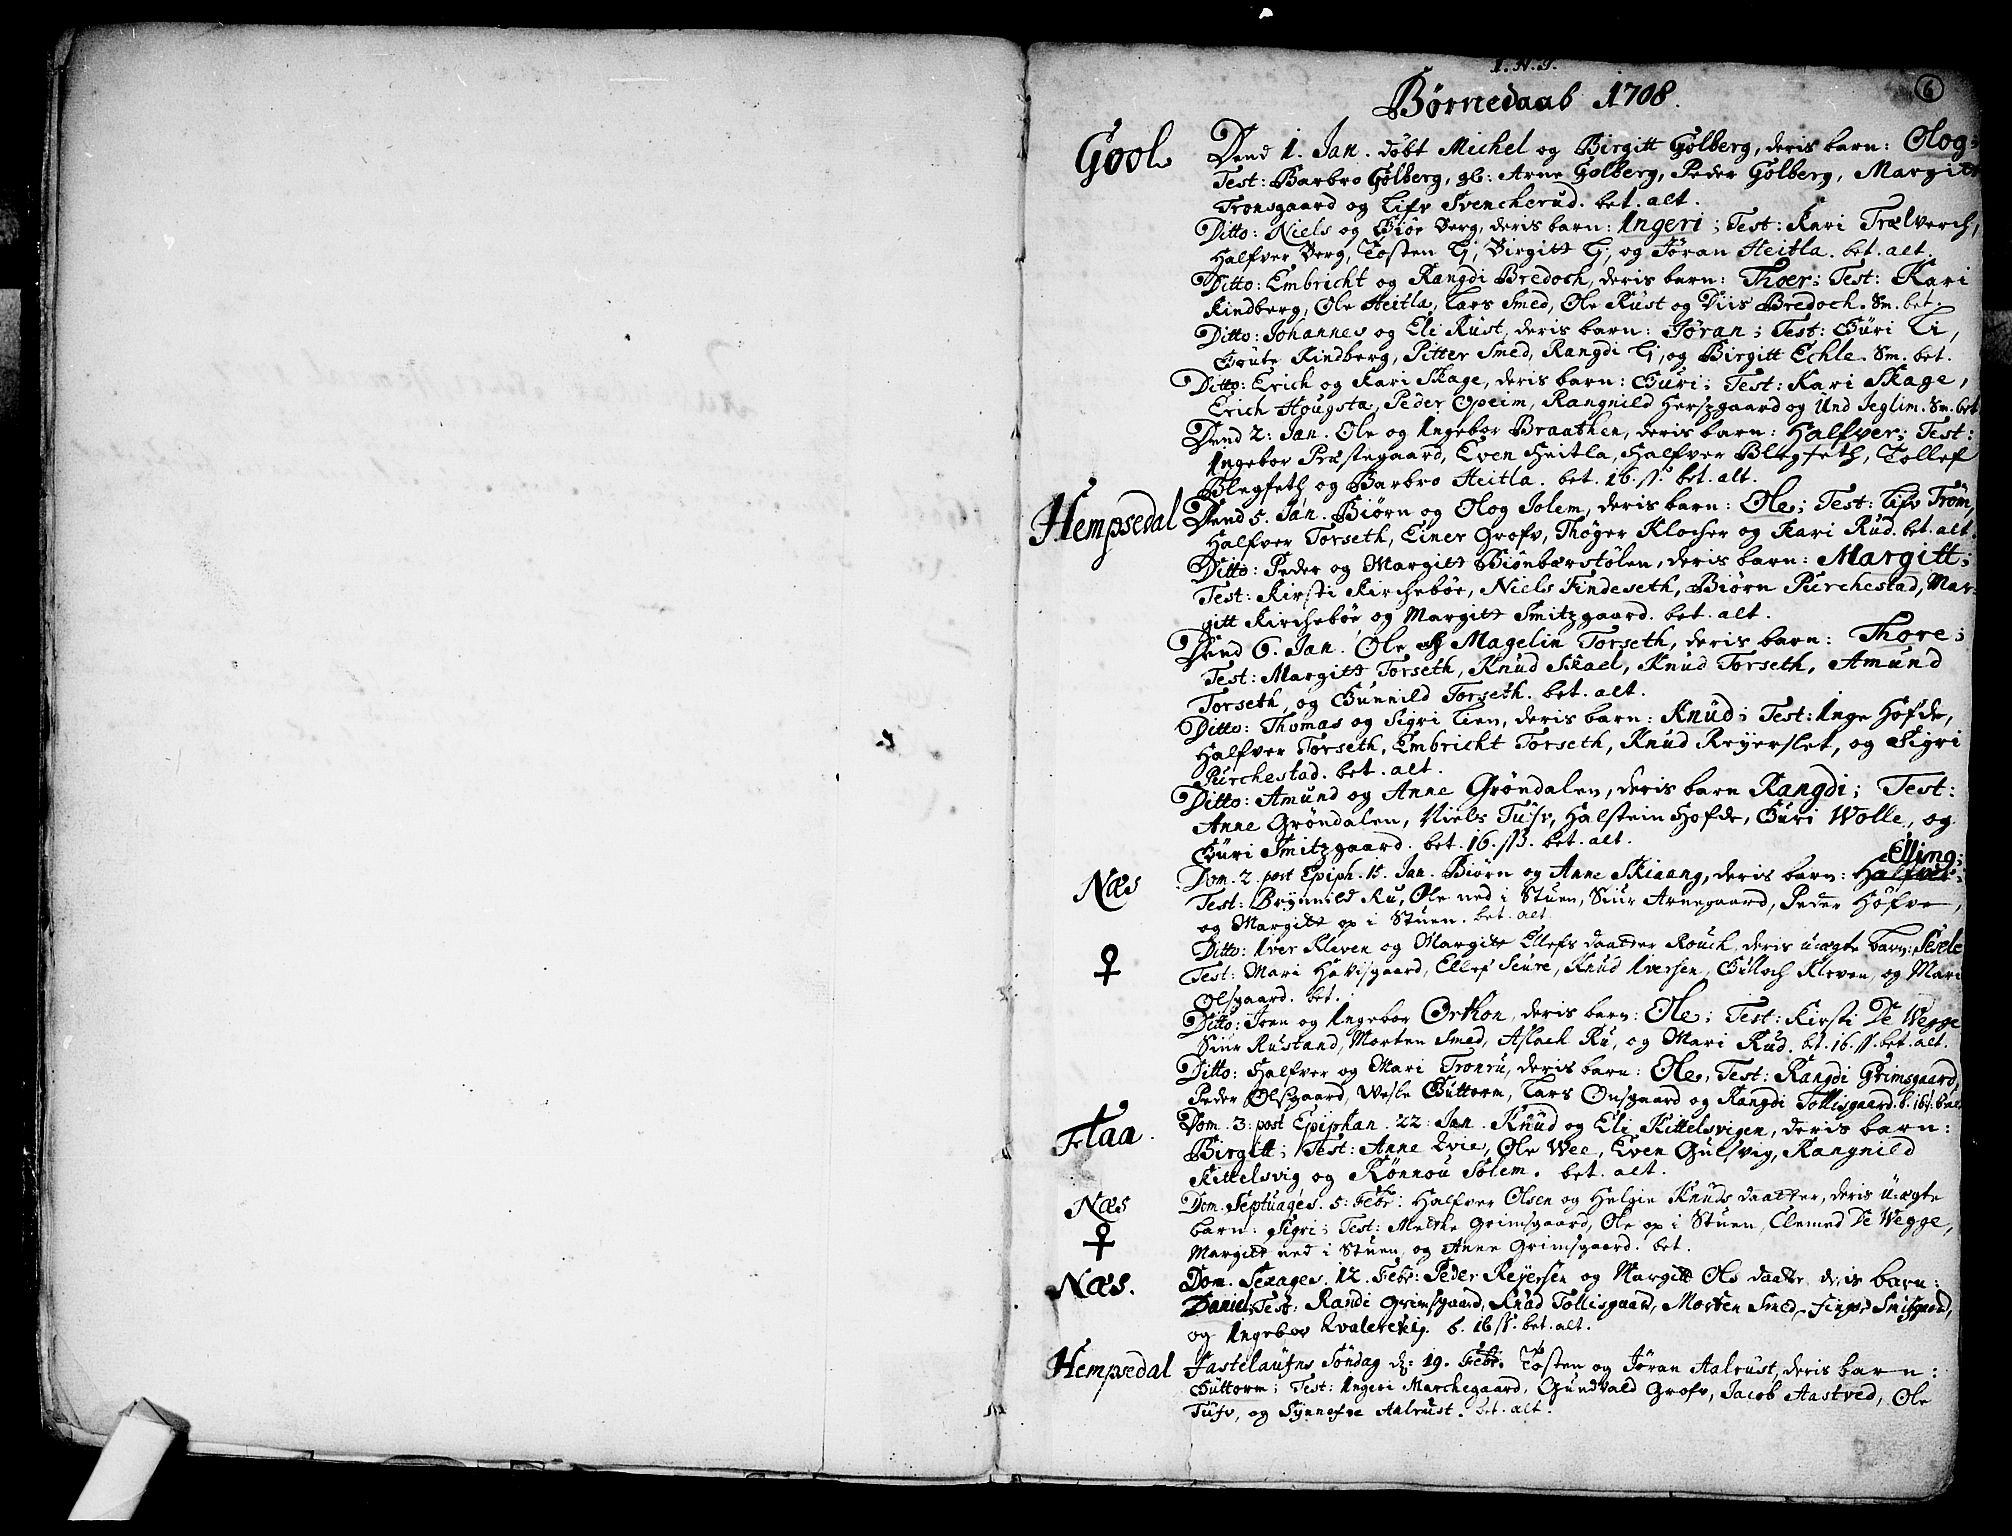 I. N. J.
6
Børnedaab 1708.
Gool
Dend 1. Jan. døbt Michel og Birgitt Golberg, deris barn: Olog;
Test: Barbro Golberg, gl: Arne Golberg, Peder Golberg, Margitt
Tronsgaard og Lifv Svencherud. bet. alt.
Ditto: Niels og Giøe Berg, deris barn: Ingeri; Test: Kari Trælverch,
Halfver Berg, Tosten Lj, Birgitt Lj, og Jøran Heitla. bet. alt.
Ditto: Embricht og Rangdi Bredoch, deris barn: Thoer; Test: Kari
Rindberg, Ole Heitla, Lars Smed, Ole Rust og Diis Bredoch. Sm. bet.
Ditto: Johannes og Eli Rust, deris barn: Jøran; Test: Guri Li,
Goute Rindberg, Pitter Smed, Rangdi Lj, og Birgitt Echle. Sm. bet.
Ditto: Erich og Kari Skage, deris barn: Guri; Test: Kari Skage,
Erich Hougsta, Peder Opeim, Rangnild Herszgaard og Und Jeglim. Sm. bet
Dend 2. Jan. Ole og Ingebor Braathen, deris barn: Halfver; Test:
Ingebor Præstegaard, Even Heitla, Halfver Blegfeth, Tollef
Blegfeth og Barbro Heitla. bet. 16. ß. bet. alt.
Hempsedal
Dend 5. Jan. Biørn og Olog Solem, deris barn: Ole; Test: Lifv Trøm,
Halfver Torseth, Einer Grofv, Thøger Klocher og Kari Rud. bet. alt.
Ditto: Peder og Margitt Biønbærstølen, deris barn: Margitt;
Test: Kirsti Kirchebøe, Niels Findeseth, Biørn Purchestad, Mar-
gitt Kirchebøe og Margitt Smitzgaard. bet. alt.
Dend 6. Jan. Ole og Magelin Torseth, deris barn: Thore;
Test: Margitt Torseth, Knud Skael, Knud Torseth, Amund
Torseth, og Gunnild Torseth. bet. alt.
Ditto: Thomas og Sigri Lien, deris barn: Knud; Test: Inge Hofde,
Halfver Torseth, Embricht Torseth, Knud Reyerslet, og Sigri
Purchestad. bet. alt.
Ditto: Amund og Anne Grøndalen, deris barn Rangdi; Test:
Anne Grøndalen, Niels Tufv, Halstein Hofde, Guri Wolle, og
Guri Smitzgaard. bet. 16. ß. bet. alt.
Elling;
Næs
Dom. 2. post Epiph. 15. Jan. Biørn og Anne Skiaang, deris barn: Halfver;
Test: Brynnild Ru, Ole ned i Stuen, Siur Arnegaard, Peder Hofve,
og Margitt op i Stuen. bet. alt.
♀
Ditto: Iver Kleven og Margitt Ellefs daatter Rouch, deris uægte barn: Sesele
Test: Mari HaVisgaard, Ellef Seure, Knud Iversen, Gulloch Kleven, og Mari
Olsgaard. bet.
Ditto: Joen og Ingebor Orthon, deris barn: Ole; Test: Kirsti De Wegge
Siur Rustand, Morten Smed, Aslach Ru, og Mari Rud. bt. 16. ß. bet. alt.
Ditto: Halfver og Mari Tronru, deris barn: Ole, Test: Rangdi Grimsgaard,
Peder Olsgaard, Wesle Guttorm, Lars Onsgaard og Rangdi Tollisgaard. b. 16 ß. b. al.
Flaa.
Dom. 3. post Epiphan. 22. Jan. Knud og Eli Kittelsvigen, deris barn:
Birgitt; Test: Anne Qvie, Ole Wee, Even Gulsvig, Rangnild
Kittelsvig og Rønnou Solem. bet. alt.
Næs
♀
Dom. Septuages. 5. Febr: Halfver Olsen og Helgie Knuds daatter, deris uægte
barn: Sigri; Test: Melthe Grimsgaard, Ole op i Stuen, Clemed De Wegge,
Margitt ned i Stuen, og Anne Grimsgaard. bet.
Næs.
Dom. Sexages. 12. Febr: Peder Reyersen og Margitt Ols daatter deris barn:
Daniel, Test: Randi Grimsgaard, Knud Tollisgaard, Morten Smed, Fingar Smisgaard,
og Ingebor Qvalerskig. b. 16 ß. bet. alt.
Hempsedal
Fastelaufns Søndag d: 19. Febr. Tosten og Jøran Aalrust, deris barn:
Guttorm; Test: Ingeri Marchegaard, Gundvald Grofv, Jacob Aastved, Ole
Tufv, og Synnefve Aalrust. bet. alt.